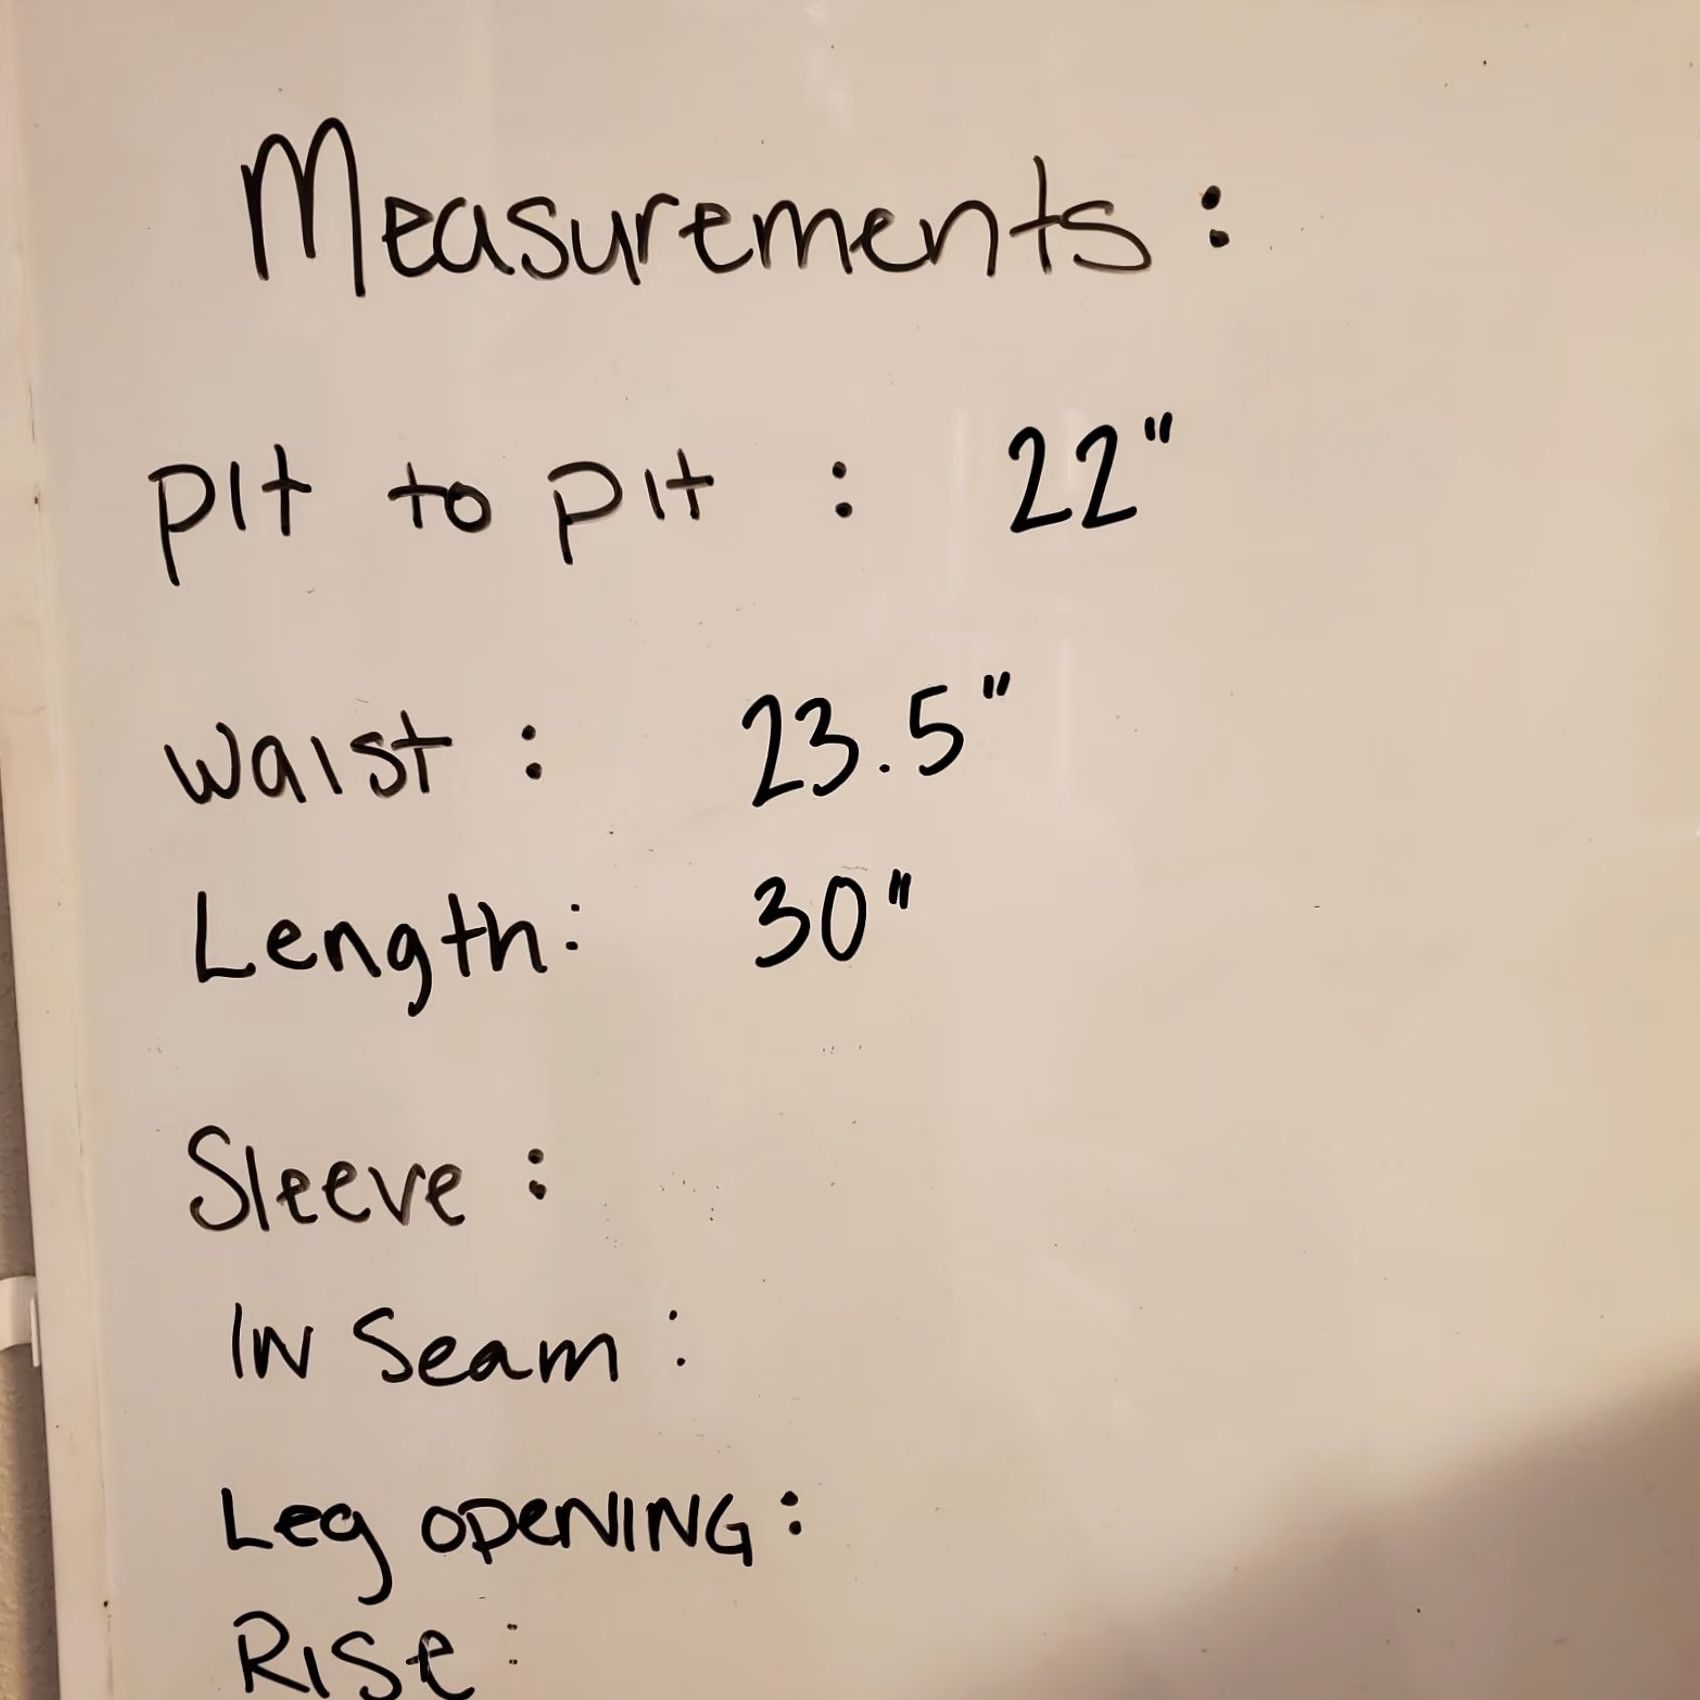 Measurements:
pit to pit : 22"
waist : 23.5"
Length: 30"
Sleeve :
IN Seam :
Leg OPENING:
RISe: